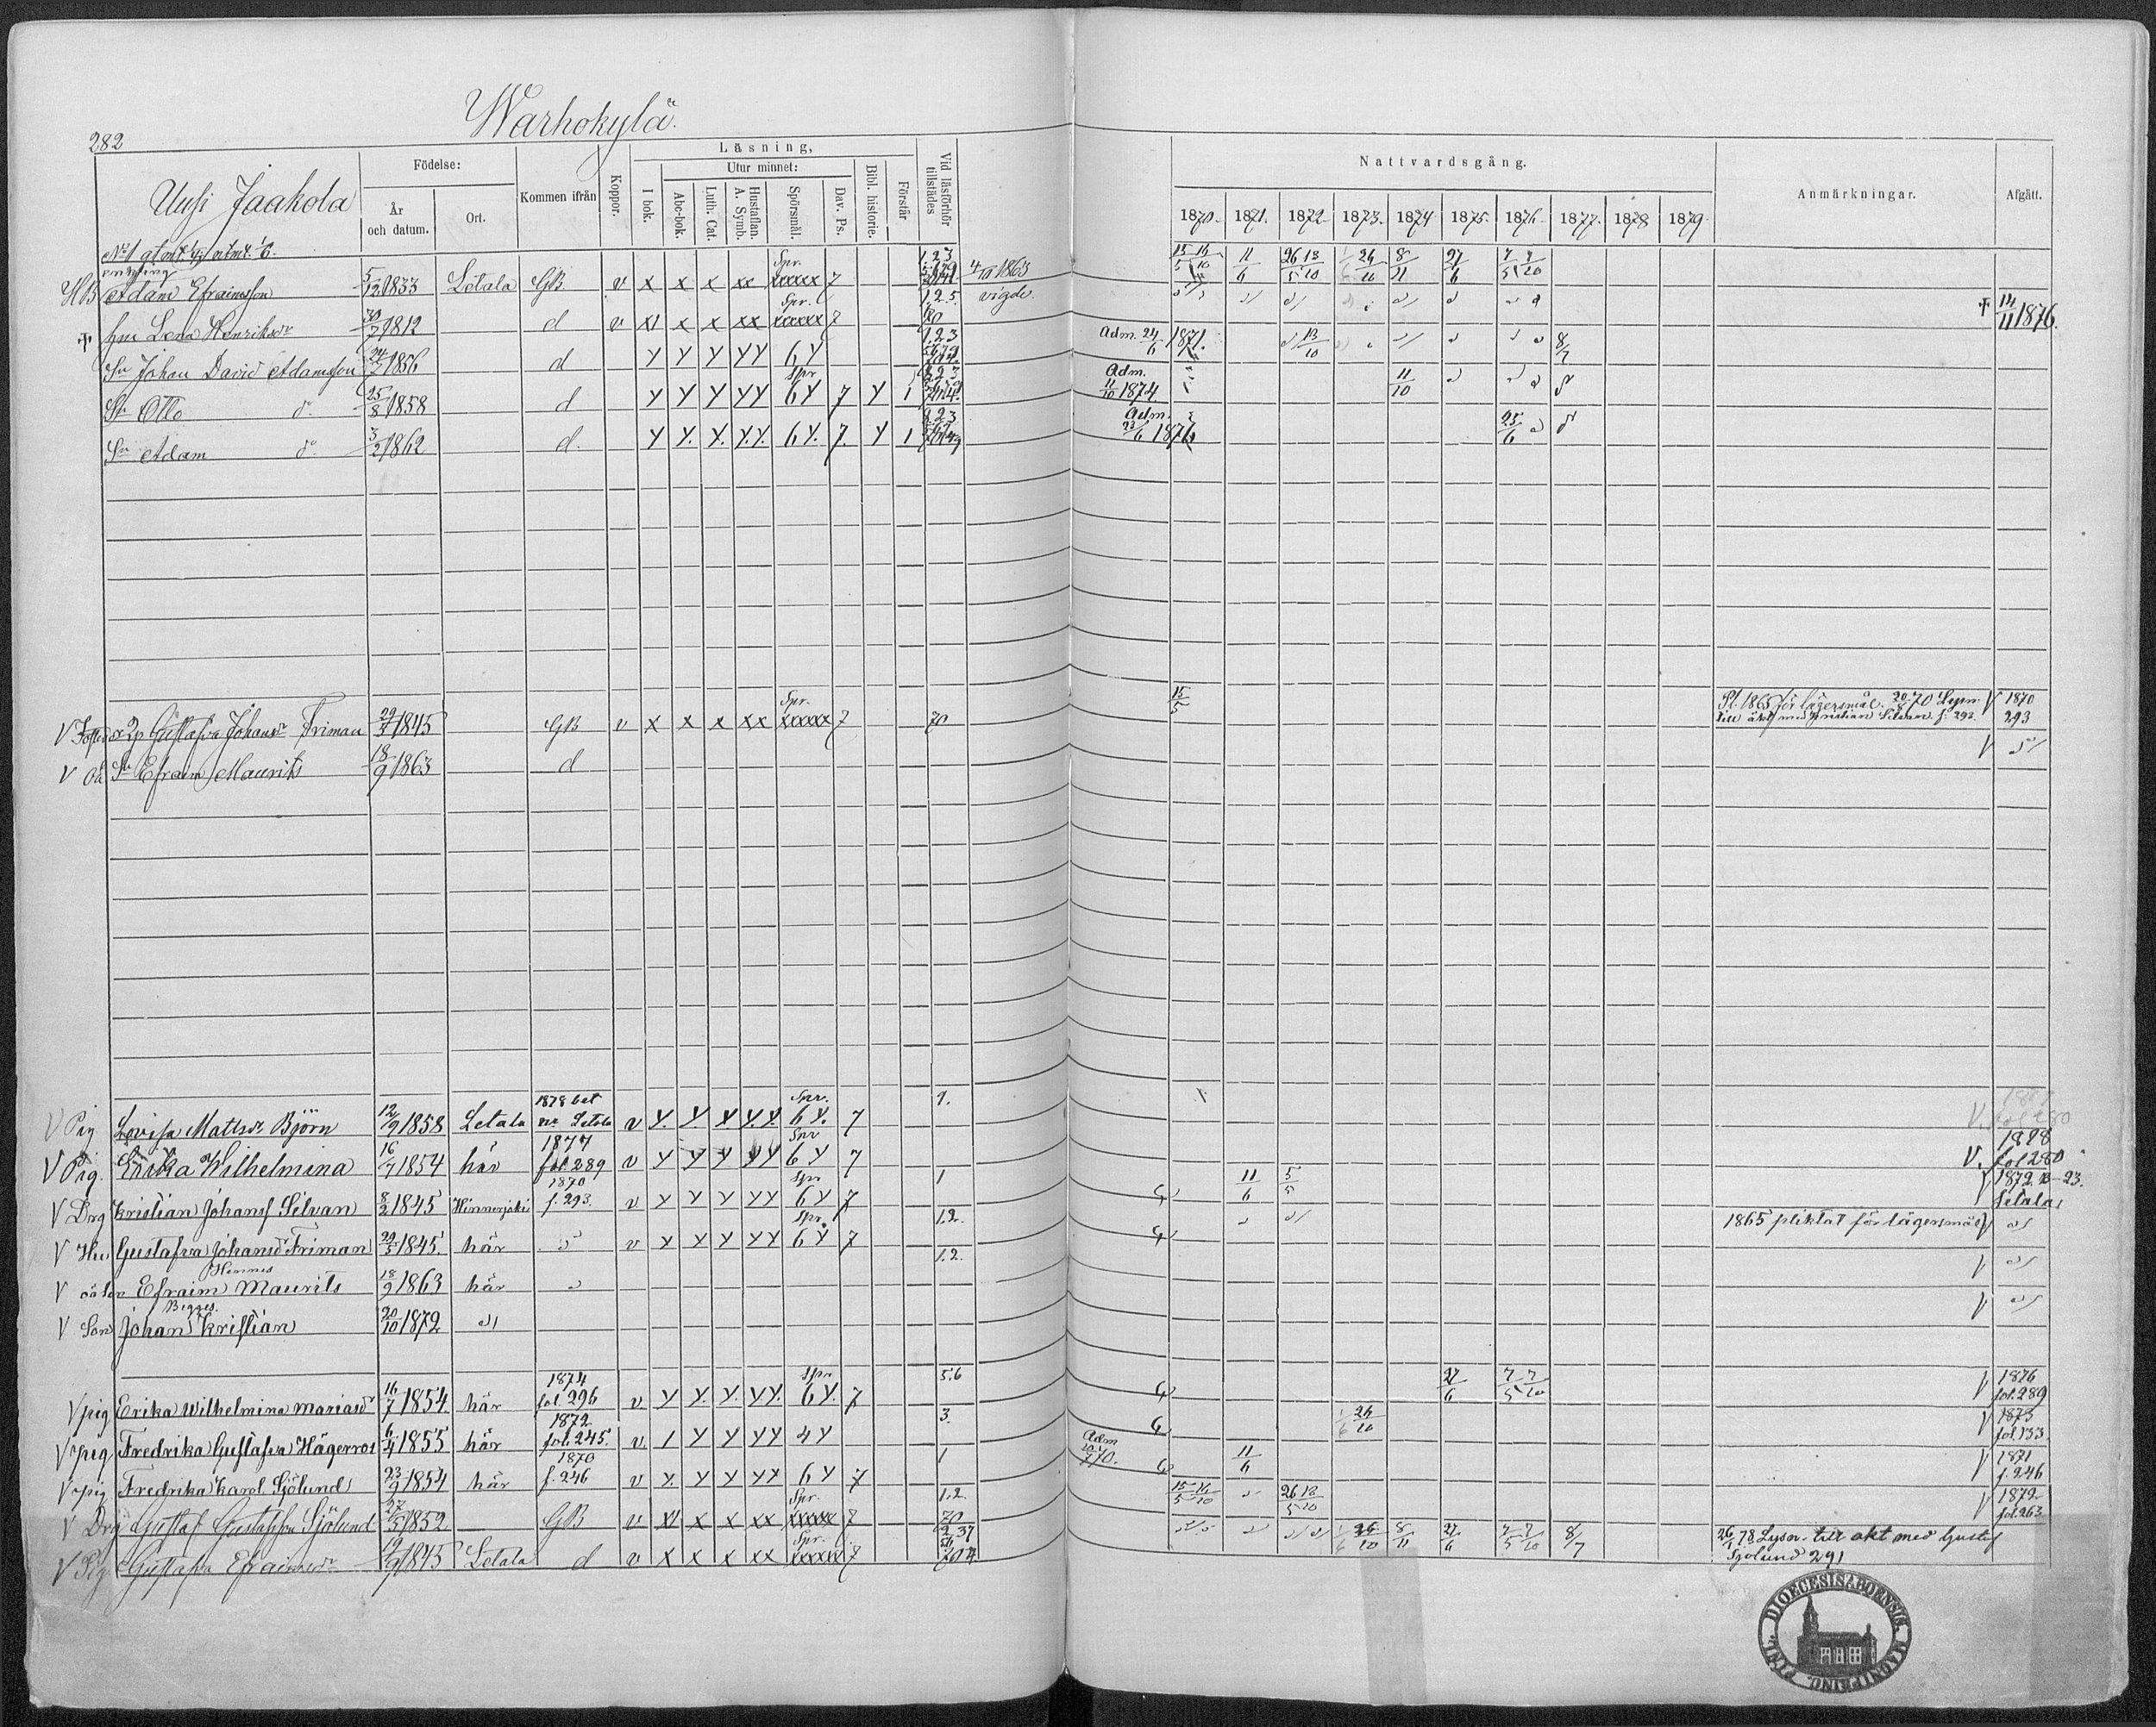 282
Warhokylä.
Uusi Jaakola
Födelse:
År och datum.
Ort.
Kommen ifrån
Koppor.
Läsning,
I bok.
Utur minnet:
Abc-bok.
Luth. Cat.
Hustaflan. A. Symb.
Spörsmål.
Dav. Ps.
Bibl. historie.
Förstår
Vid läsförhör tillstädes
Nattvardsgång.
1870. 1871. 1872. 1873. 1874 1875. 1876. 1877. 1878 1879.
Anmärkningar.
Afgått.
HB Adam Efraimsson 5/12 1833 Letala GB v x x x xx Spr. xxxxx 7 1863 vigde. 15/5 16/10 11/6 26/5 13/10 26/10 8/11 27/6 7/5 7/10
† Hu Lena Henriksdr 30/7 1812 d v x x x xx Spr. xxxxx 7 1.2.5. 70 † 14/11 1876.
Sn Johan David Adamsson 24/7 1856 d Y Y Y YY 6Y Adm. 24/6 1871. 13/10 8/7
Sn Otto do 25/8 1858 d Y Y Y YY Spr 6Y 7 Y 1 Adm. 11/10 1874. 11/10
Sn Adam do 3/2 1862 d. Y Y. Y. Y.Y. 6Y. 7. Y 1 Adm. 23/6 1876 25/6
V Gustafva Johansdr Friman 29/5 1845 GB v x x x xx Spr. xxxxx 7 70 15/5 Pl. 1865 för lägersmål. 20/8 70 Lysn. V 1870
till äkt. med Kristian Silvan f. 293. 293
V oä Sn Efraim Maurits 18/9 1863 d V
V Pig Lovisa Mattsdr Björn 12/9 1858 Letala 1878 bet Letala v Y. Y Y Y.Y. Spr. 6Y. 7 1. V. fol 280
V Pig. Erika Wilhelmina 16/7 1854 här 1877 fol 289 v Y Y Y YY Spr 6Y 7 V. 1878 fol 280
V Drg Kristian Johansf Silvan 8/2 1845 Hinnerjoki 1870 f. 293. v Y Y Y YY Spr 6Y 7 1 11/6 5/5 V 1872 Letala
V Hu Gustafva Johansdr Friman 29/5 1845. här v Y Y Y YY Spr. 6Y 7 1.2. 1865 pliktat för lägersmål V
V oä son Hennes Efraim Maurits 18/9 1863 här 1.2. V
V Son Begges Johan Kristian 20/10 1872 V
V pig Erika Wilhelmina Mariasdr 16/7 1854 här 1874 fol 296 v Y Y. Y. YY. Spr 6Y. 7 5.6 27/6 7/5 7/10 V 1876 fol. 289
V pig Fredrika Gustafva Hägerros 6/4 1855 här 1872 fol. 245. v 1 Y Y YY 4Y 3. 26/10 V 1873 fol. 133.
V pig Fredrika Karol Sjölund 23/9 1854 här 1870 f. 246 v Y. Y Y YY 6Y 7 1 Adm 11/6 V 1871 f. 246
V Drg Gustaf Gustafson Sjölund 27/5 1852 GB v x x x xx Spr. xxxxx 7 1.2. 70 15/5 16/10 26/5 13/10 V 1872 fol. 263
V Pig Gustafva Efraimsdr 19/9 1845 Letala d v x x x xx Spr. xxxxx 7 26/10 8/11 27/6 7/5 7/10 8/7 78 Lysn. till äkt med Gustaf
Sjölund 291
DIOECESIS ABOENSIS. MAGNI PRINC. FINL.